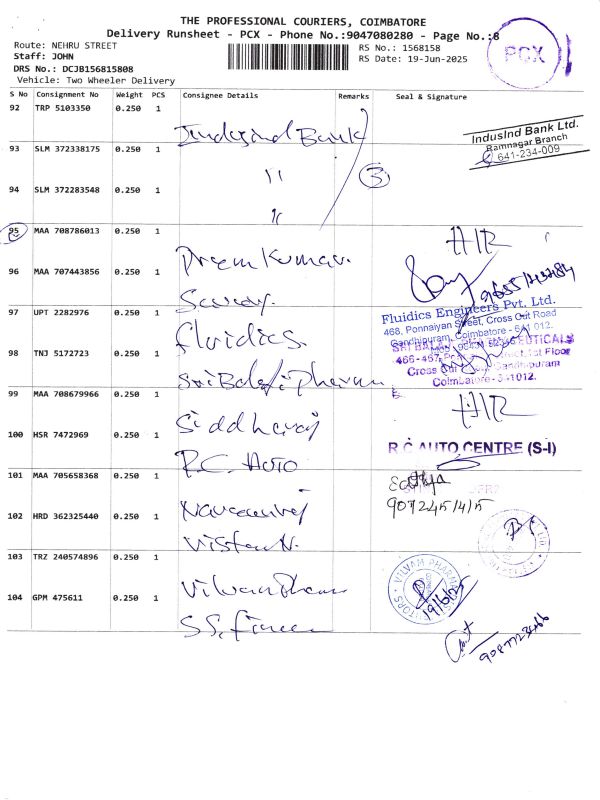 THE PROFESSIONAL COURIERS, COIMBATORE
Delivery Runsheet - PCX - Phone No.:9047080280 - Page No.:8
Route: NEHRU STREET
RS No.: 1568158
Staff: JOHN
RS Date: 19-Jun-2025
DRS No.: DCJB156815808
Vehicle: Two Wheeler Delivery
PCX
S No Consignment No Weight PCS Consignee Details Remarks Seal & Signature
92 TRP 5103350 0.250 1
Indusind Bank
IndusInd Bank Ltd.
Ramnagar Branch
641-234-009
93 SLM 372338175 0.250 1
"
3
94 SLM 372283548 0.250 1
"
95 MAA 708786013 0.250 1
Prem Kumar.
96 MAA 707443856 0.250 1
97 UPT 2282976 0.250 1
Fluidics.
Fluidics Engineers Pvt. Ltd.
468, Ponnaiyan Street, Cross Cut Road
Gandhipuram, Coimbatore - 641 012.
98 TNJ 5172723 0.250 1
Sri Balaji Pharam
Cross Cut Gandhipuram
Coimbatore-641012.
99 MAA 708679966 0.250 1
Siddharaj
100 HSR 7472969 0.250 1
R.C. Auto
R.C AUTO CENTRE (S-I)
101 MAA 705658368 0.250 1
102 HRD 362325440 0.250 1
Vistaa N.
103 TRZ 240574896 0.250 1
Vilvam Pharm
VILVAM PHARMA
19/6/25
104 GPM 475611 0.250 1